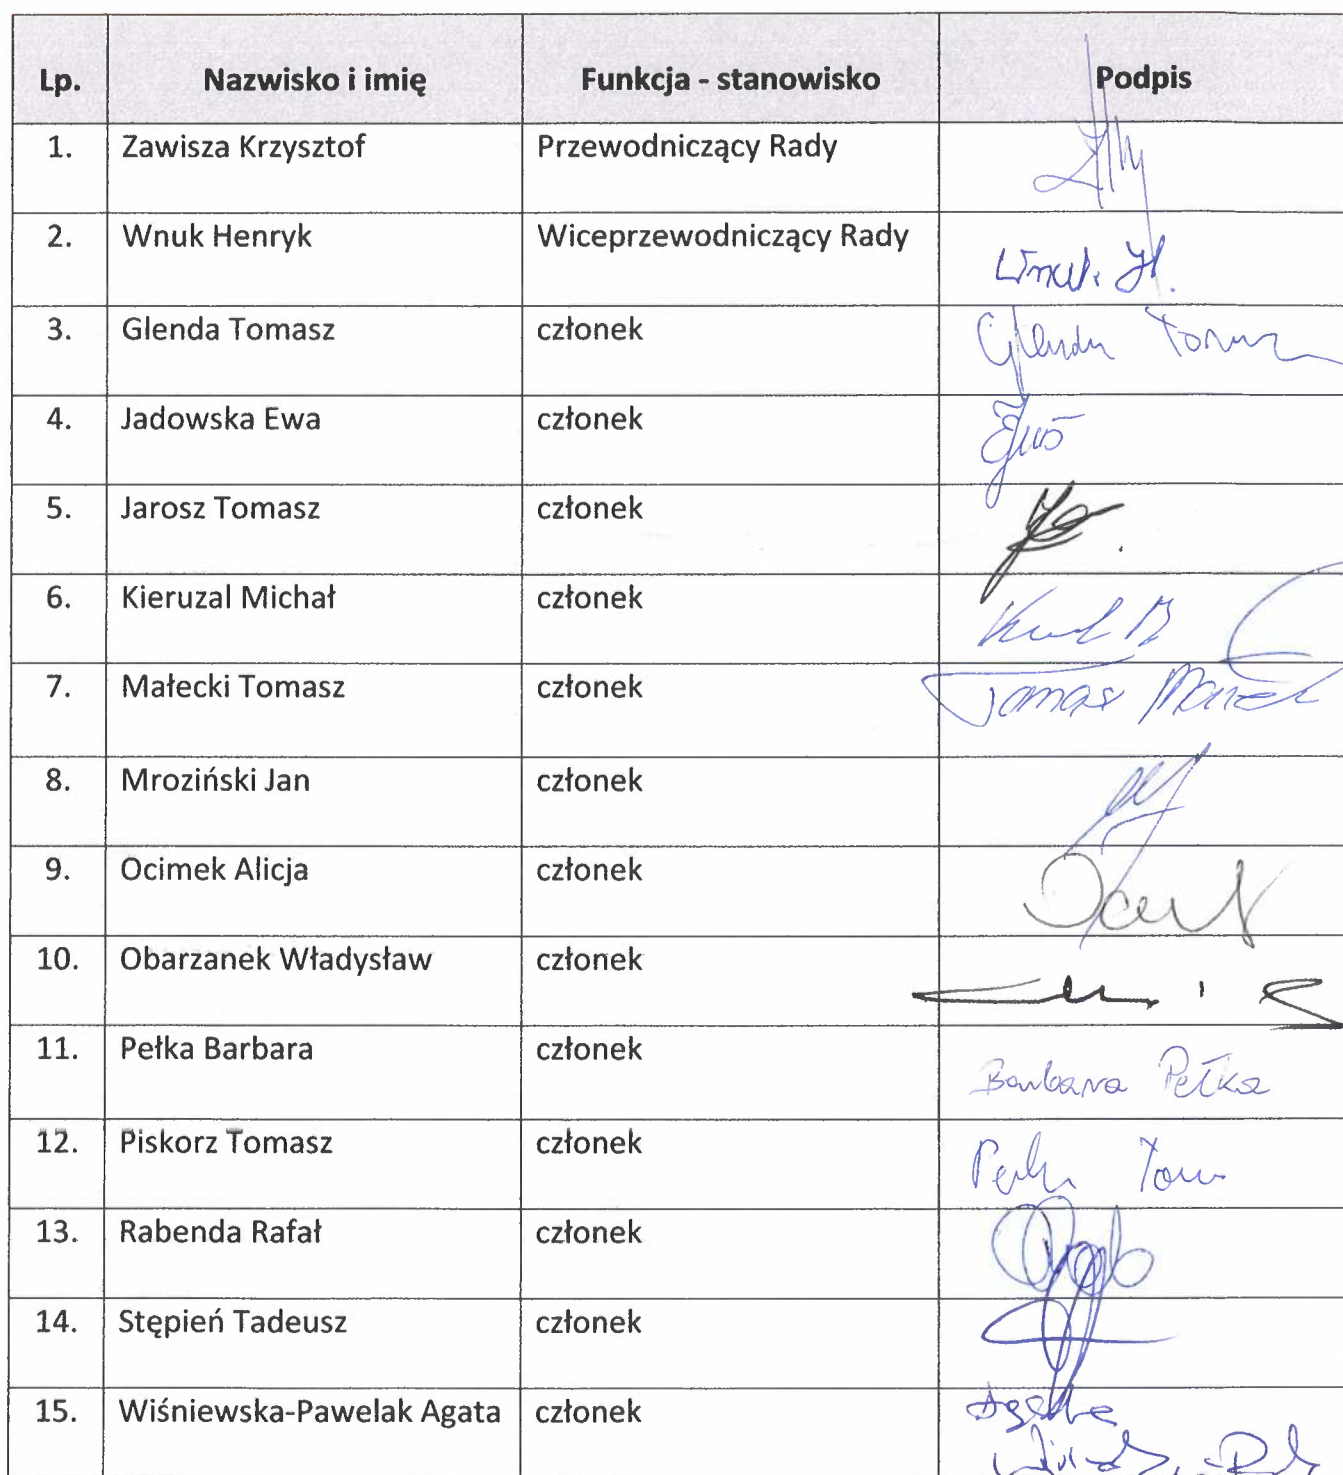 Lp. Nazwisko i imię Funkcja - stanowisko Podpis
1. Zawisza Krzysztof Przewodniczący Rady
2. Wnuk Henryk Wiceprzewodniczący Rady Wnuk. H.
3. Glenda Tomasz członek Glenda Tomasz
4. Jadowska Ewa członek
5. Jarosz Tomasz członek
6. Kieruzal Michał członek
7. Małecki Tomasz członek Tomasz
8. Mroziński Jan członek
9. Ocimek Alicja członek
10. Obarzanek Władysław członek
11. Pełka Barbara członek Barbara Pełka
12. Piskorz Tomasz członek
13. Rabenda Rafał członek
14. Stępień Tadeusz członek
15. Wiśniewska-Pawelak Agata członek Agata